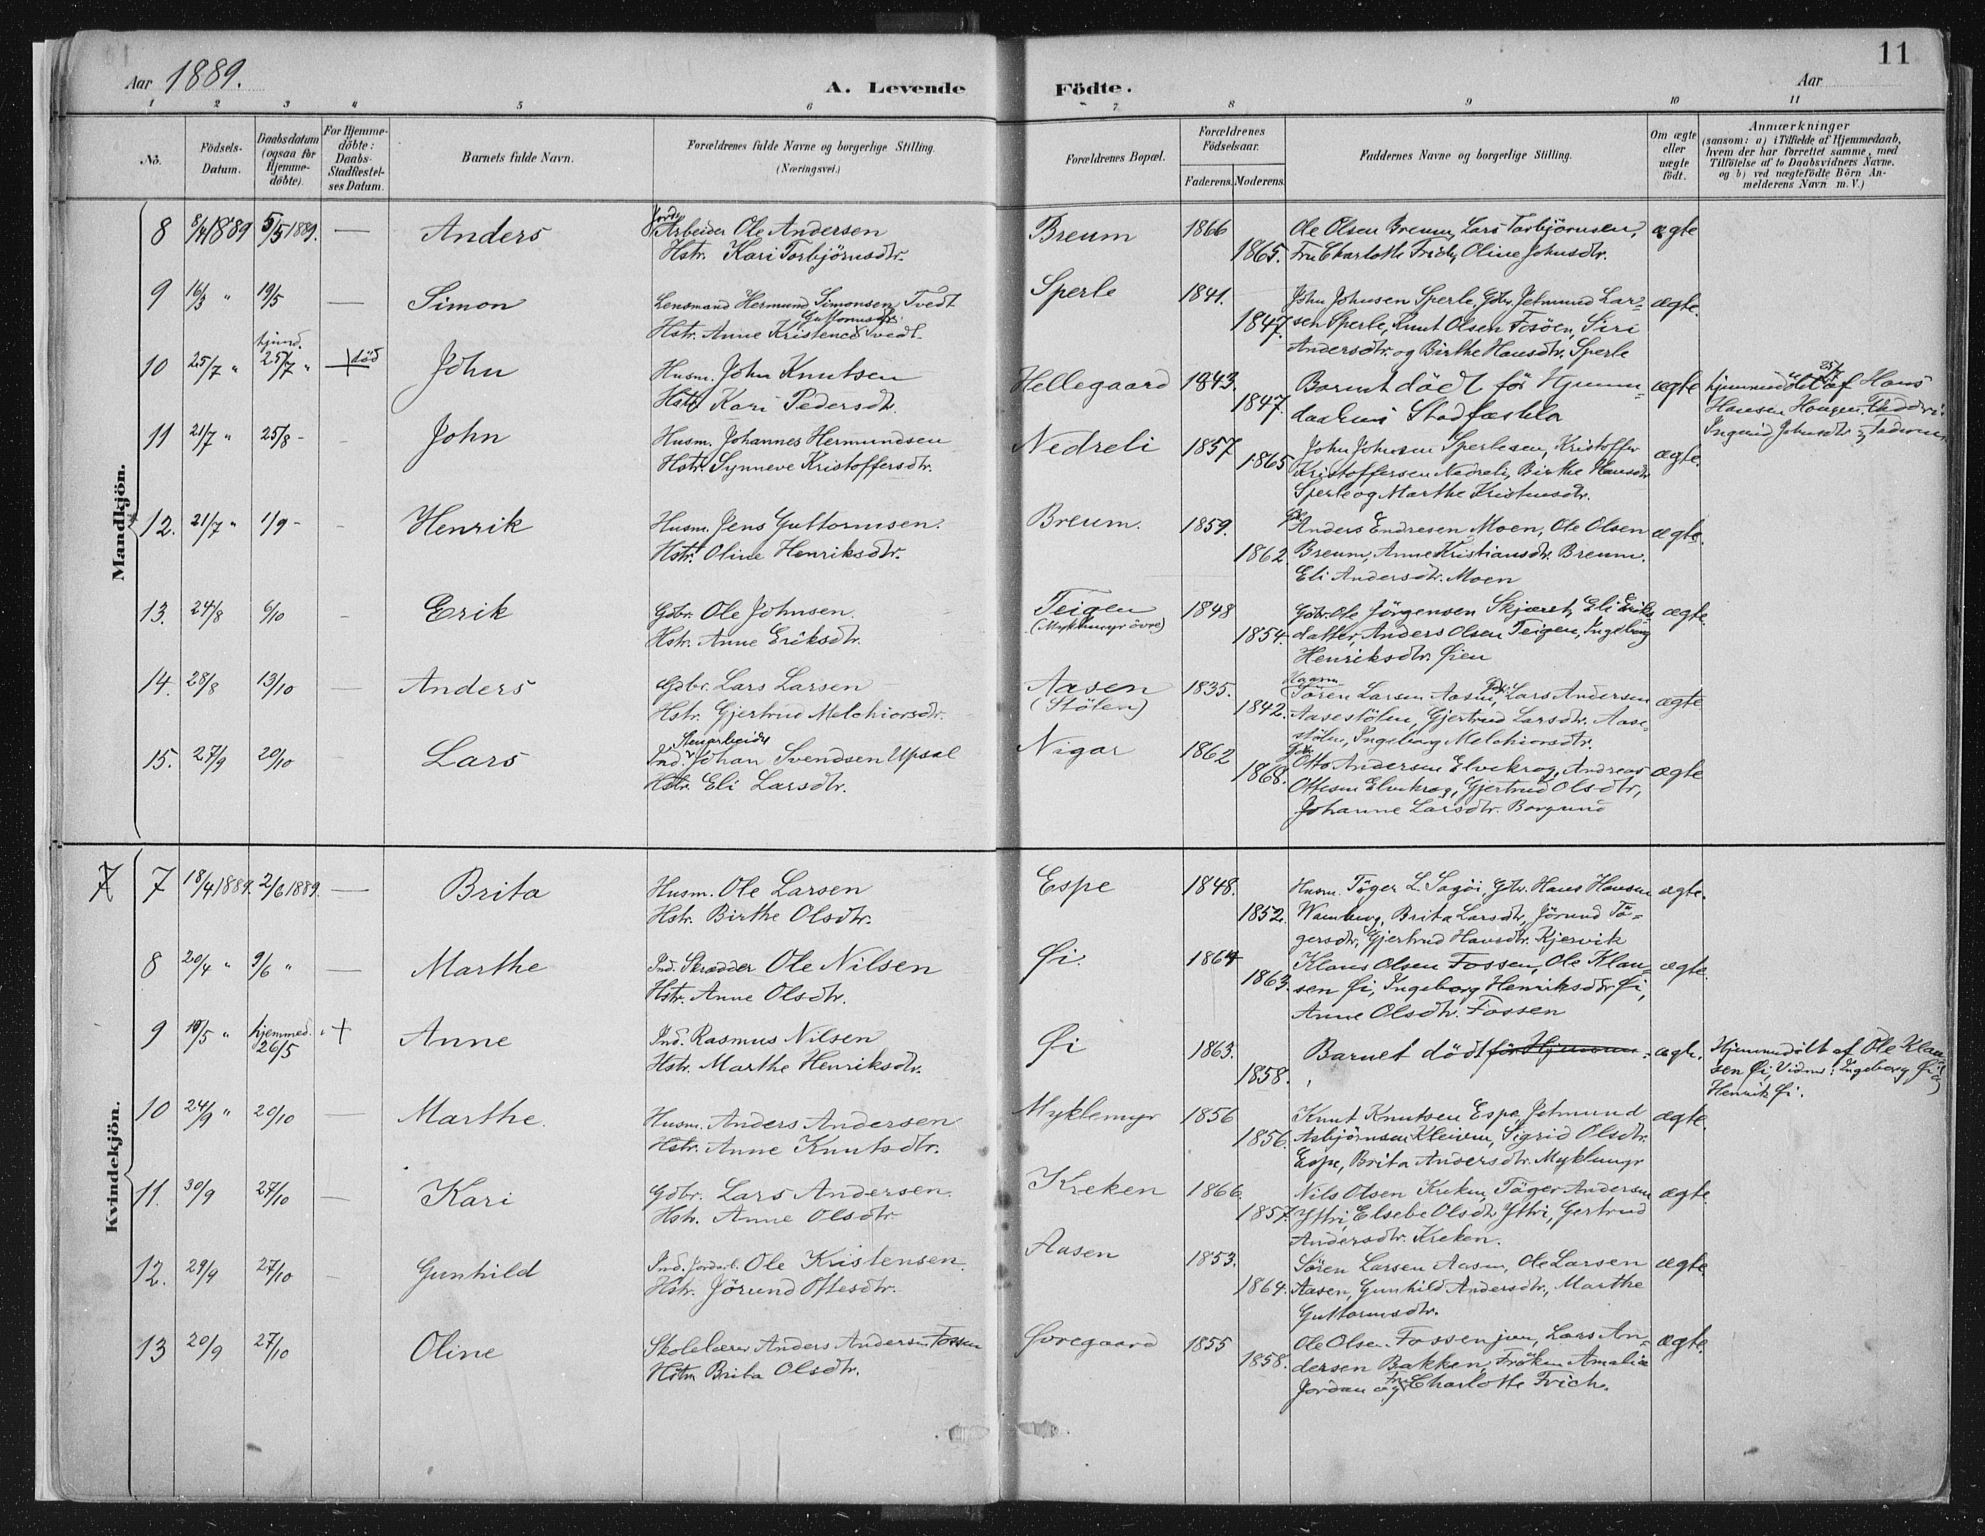 11
Aar 1889.
A. Levende Födte.
Aar
1 2 3 4 5 6 7 8 9 10 11
No.
Födsels-Datum.
Daabsdatum (ogsaa for Hjemme-døbte).
For Hjemme-döbte: Daabs-Stadfæstel-ses Datum.
Barnets fulde Navn.
Forældrenes fulde Navne og borgerlige Stilling. (Næringsvei.)
Forældrenes Bopæl.
Forældrenes Födselsaar.
Faderens. Moderens.
Faddernes Navne og borgerlige Stilling.
Om ægte eller uægte födt.
Anmærkninger
(saasom: a) i Tilfælde af Hjemmedaab,
hvem der har forrettet samme, med
Tilföielse af to Daabsvidners Navne,
og b) ved uægtefödte Börn An-
melderens Navn m. V.)
Mandkjön.
8 8/4 1889 5/5 1889. — Anders
Jordarbeider Ole Andersen
Hstr. Kari Torbjörnsdtr.
Breum 1866 1865.
Ole Olsen Breum, Lars Torbjörnsen,
Fru Charlotte Frich, Oline Johnsdtr.
ægte
9 16/3 " 19/5 — Simon
Lensmand Hermund Simonsen Tvedt
Hstr. Anne Kristence Guttormsdtr. Tvedt.
Sperle 1841. 1847.
John Johnsen Sperle, Gbr. Jetmund Lar-
sen Sperle, Knut Olsen Fosöen, Siri
Andersdtr. og Birthe Hansdtr. Sperle
ægte.
10 25/7 " hjemd. 25/7 " + död John
Husm. John Knutsen
Hstr. Kari Pedersdtr.
Hellegaard 1843. 1847.
Barnet död för Hjemme-
daabens Stadfæstelse
ægte
hjemmedöbt 25/7 af Hans
Hansen Haugen,
Ingerid Johnsdtr.
11 21/7 " 25/8 - - John
Husm. Johannes Hermundsen
Hstr. Synneve Kristoffersdtr.
Nedreli 1857 1865
John Johnsen Sperlesen, Kristoffer
Kristoffersen Nedreli, Birthe Hansdtr
Sperle og Marthe Kristensdtr.
ægte.
12. 21/7 " 1/9 - - Henrik
Husm. Jens Guttormsen.
Hstr. Oline Henriksdtr.
Breum. 1859. 1862.
Gbr. Anders Endresen Moen, Ole Olsen
Breum, Anne Kristiansdtr. Breum.
Eli Andersdtr. Moen
ægte.
13. 24/8 6/10 - Erik
Gdbr. Ole Johnsen
Hstr. Anne Eriksdtr.
Teigen (Myklemyr övre) 1848 1854.
Gdbr. Ole Jörgensen Skjæret, Eli Eriks-
datter, Anders Olsen Teigen, Ingeborg
Henriksdtr. Øien
ægte.
14. 28/8 13/10 — Anders
Gdbr. Lars Larsen
Hstr. Gjertrud Melchiorsdtr.
Aasen (Stölen) 1835. 1842.
Sören Larsen Aasen, Gbr. Lars Andersen
Aasestölen, Gjertrud Larsdtr. Aase-
stölen, Ingeborg Melchiorsdtr.
ægte
15. 27/9 20/10 — Lars
Ind. Stenarbeider Johan Svendsen Upsal
Hstr. Eli Larsdtr.
Nigar 1862 1868.
Gbr. Otto Andersen Elvekrog, Andreas
Ottesen Elvekrog, Gjertrud Olsdtr,
Johanne Larsdtr. Borgund
ægte
Kvindekjön.
7 7 18/4 1889. 2/6 1889. — Brita
Husm. Ole Larsen
Hstr. Birthe Olsdtr.
Espe 1848. 1852.
Husm. Töger L. Sagöi, Gbr. Hans Hansen
Wamberg, Brita Larsdtr, Jörund Tö-
gersdtr, Gjertrud Hansdtr. Kjervik
ægte.
8 20/4 " 9/6 " — Marthe
Ind. Skrædder Ole Nilsen
Hstr. Anne Olsdtr.
Øi. 1864 1863.
Klaus Olsen Fossen, Ole Klau-
sen Øi, Ingeborg Henriksdtr Øi,
Anne Olsdtr. Fossen
ægte.
9 10/5 " hjemmed. 26/5 " + Anne
Ind. Rasmus Nilsen
Hstr. Marthe Henriksdtr.
Øi 1863. 1858.
Barnet död för Hjemme-
ægte.
Hjemmedöbt af Ole Klau-
sen Øi, Vidner: Ingeborg Øi og
Henrik Øi.
10 24/9 " 20/10 — Marthe.
Husm. Anders Andersen
Hstr. Anne Knutsdtr.
Myklemyr 1856 1856.
Knut Knutsen Espe, Jetmund
Asbjörnsen Kleiven, Sigrid Olsdtr.
Espe, Brita Andersdtr. Myklemyr
ægte.
11. 30/9 27/10 — Kari
Gdbr. Lars Andersen.
Hstr. Anne Olsdtr
Kreken 1866 1857.
Nils Olsen Kreken, Töger Andersen
Yttri, Elsebe Olsdtr Yttri, Gertrud
Andersdtr. Kreken.
ægte
12. 29/9 27/10 - Gunhild
Ind. Jordarb. Ole Kristensen.
Hstr. Jörund Ottesdtr.
Aasen 1853. 1864.
Sören Larsen Aasen, Ole Larsen
Aasen, Gunhild Andersdtr., Marthe
Guttormsdtr.
ægte.
13 20/9 27/10 Oline
Skolelærer Anders Andersen Fossen
Hstr. Brita Olsdtr.
Øvregaard 1855 1858.
Ole Olsen Fossen jun, Lars An-
dersen Bakken, Fröken Amalie
Jordan og Fru Charlotte Frich.
ægte.